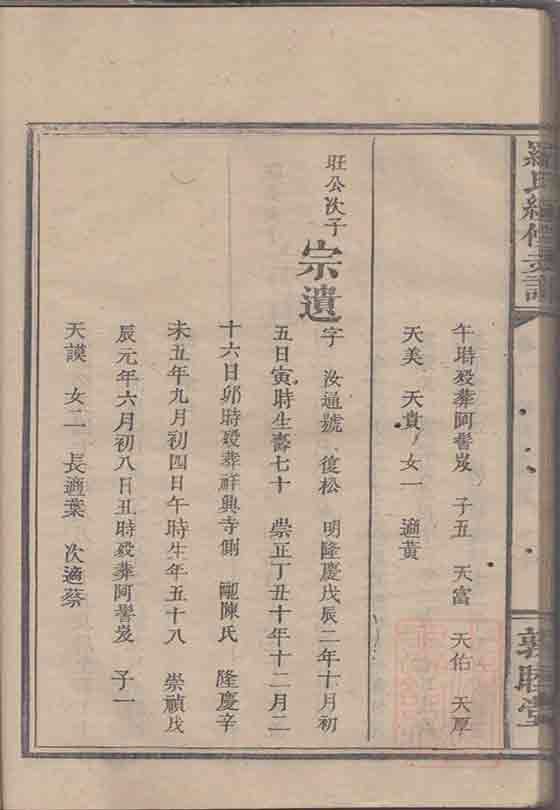 羅氏續修支譜
敦睦堂
午時歿葬阿髻岌 子五 天富 天佑 天厚
天美 天貴 女一 適黃
旺公次子
宗遺
字 汝通號 復松 明隆慶戊辰二年十月初
五日寅時生壽七十 崇正丁丑十年十二月二
十六日卯時歿葬祥興寺側 配陳氏 隆慶辛
未五年九月初四日午時生年五十八 崇禎戊
辰元年六月初八日丑時歿葬阿髻岌 子一
天謨 女二 長適葉 次適蔡